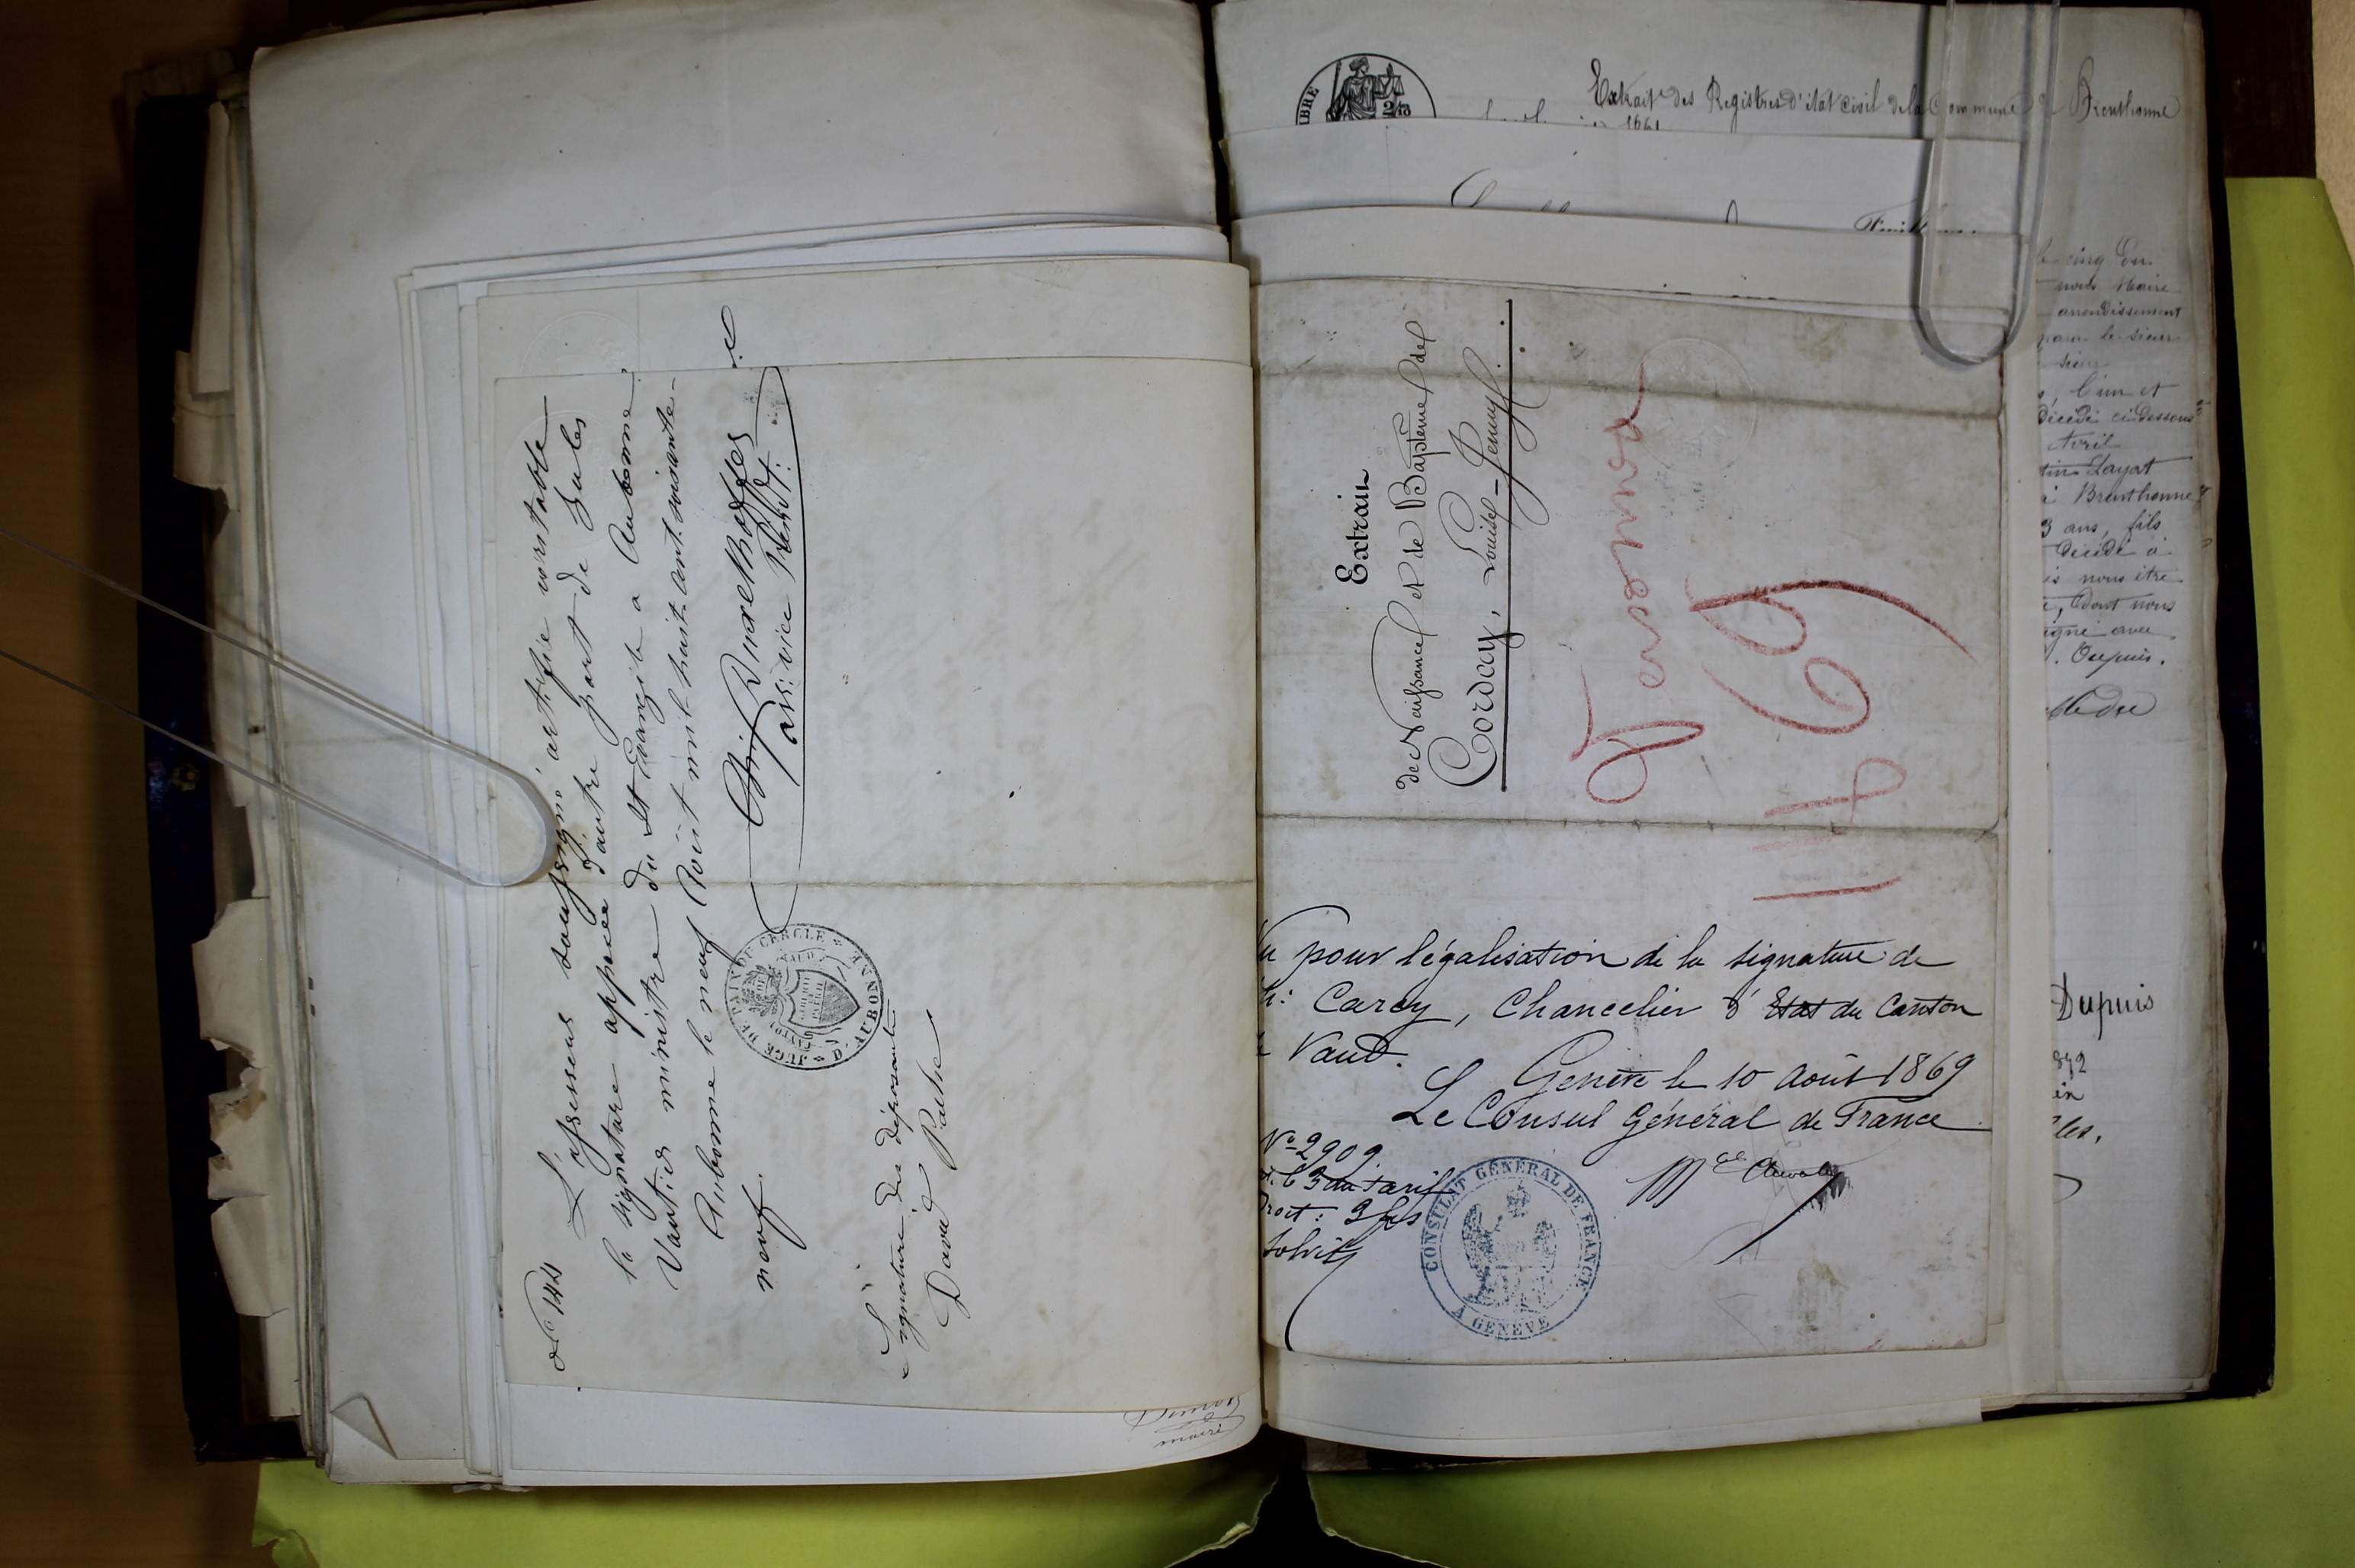 N° 144
L'assesseur soussigné certifie veritable
la signature apposée d'autre part de Jules
Vautier ministre du St Evangile a Aubonne.
Aubonne le neuf Août mil huit cent soixante-
neuf.
ass: vice Présidt:
JUGE DE PAIX DU CERCLE D'AUBONNE
CANTON DE VAUD
LIBERTÉ ET PATRIE
Signature du déposant
David
Extrait des Registres d'état civil de la Commune de Brenthonne
1861
Extrait
de Naissance et de Baptême de
Corday, Louise-Jenny.
69
Vu pour légalisation de la signature de
Mr: Carey, Chancelier d'Etat du Canton
de Vaud.
Genève le 10 Août 1869
Le Consul Général de France
N° 2909
63 du tarif
Droit: 3 frs
Solvit
CONSULAT GÉNÉRAL DE FRANCE
A GENÈVE
cinq
nous Maire
arrondissement
pour le sieur
sieur
l'un et
décédé ci dessous
Avril
Layat
à Brenthonne
3 ans, fils
décédé à
nous être
dont nous
signé avec
Dupuis.
Dupuis